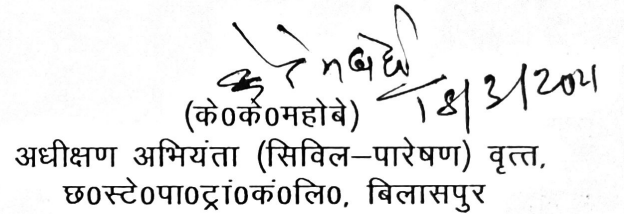 18/3/2021
(के०के०महोबे)
अधीक्षण अभियंता (सिविल–पारेषण) वृत्त,
छ०स्टे०पा०ट्रां०कं०लि०, बिलासपुर